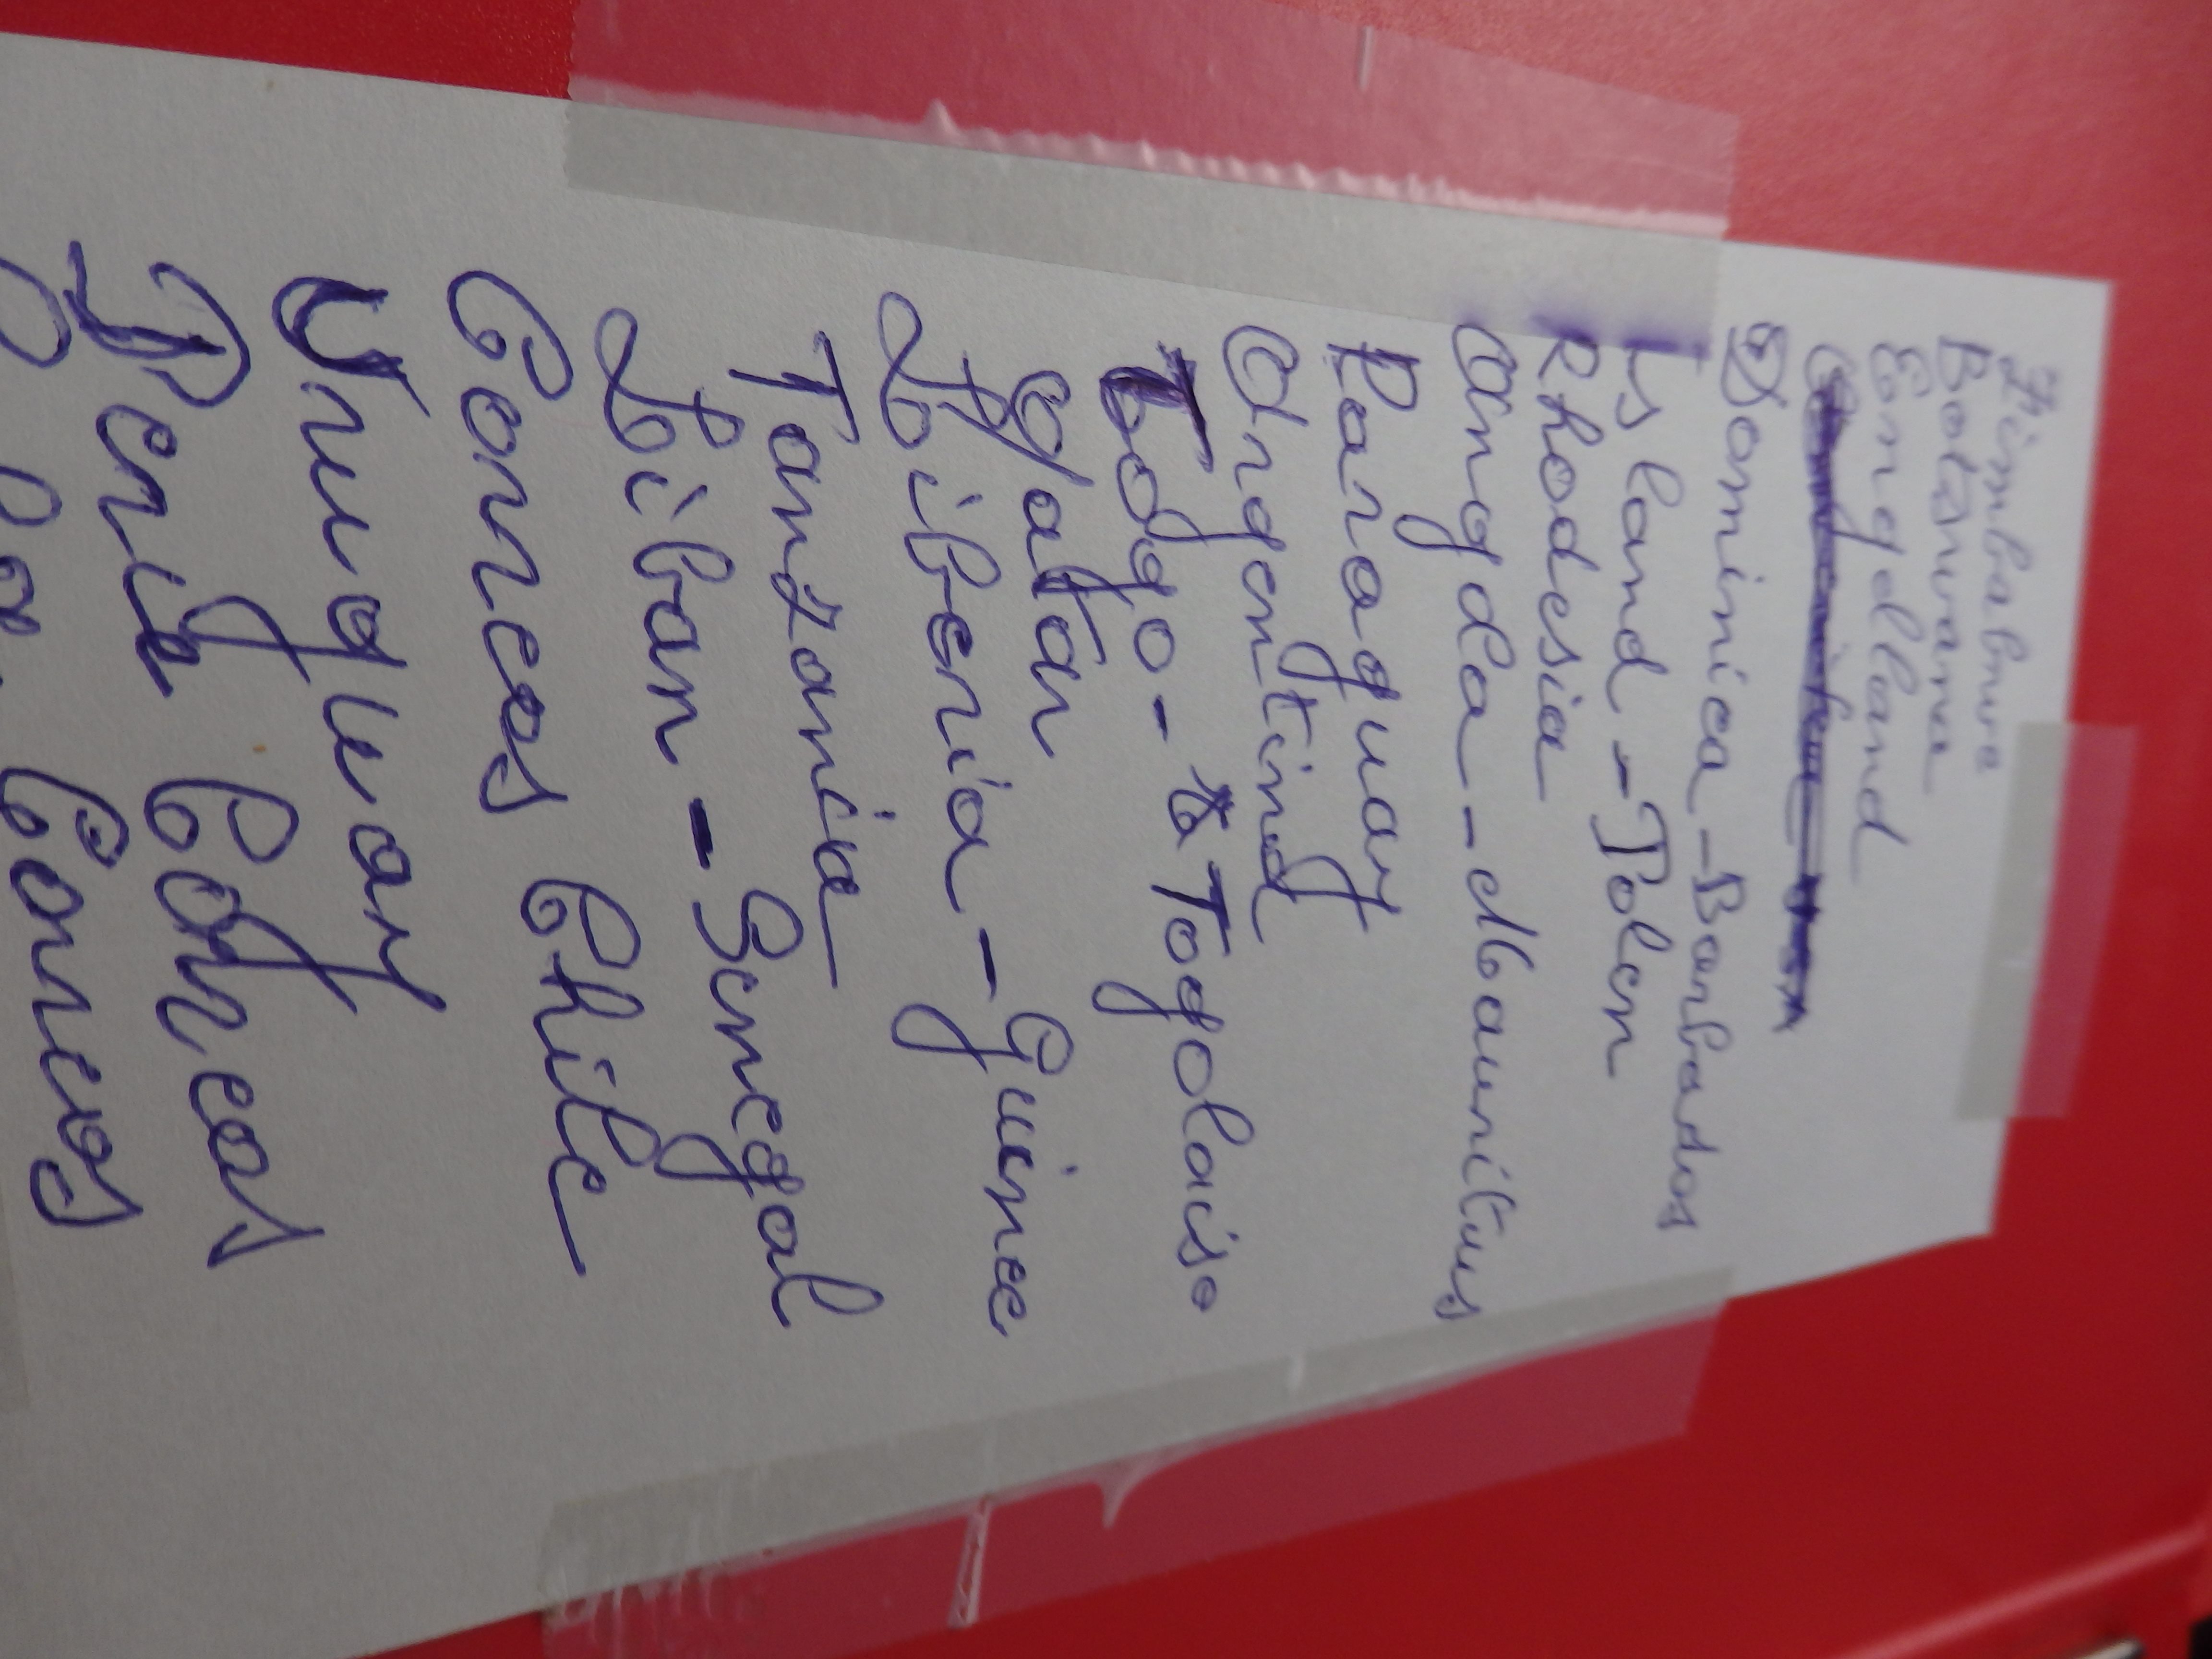 Zimbabwe
Botzwana
Engelland
Dominica - Barbados
Island - Polen
Rhodesia
Angola - Mauritius
Paraguay
Argentina
Togo - Togolaise
Yatar
Liberia - Guinee
Tanzania
Liban - Senegal
Correos Chile
Uruguay
Peru Correos
Correos